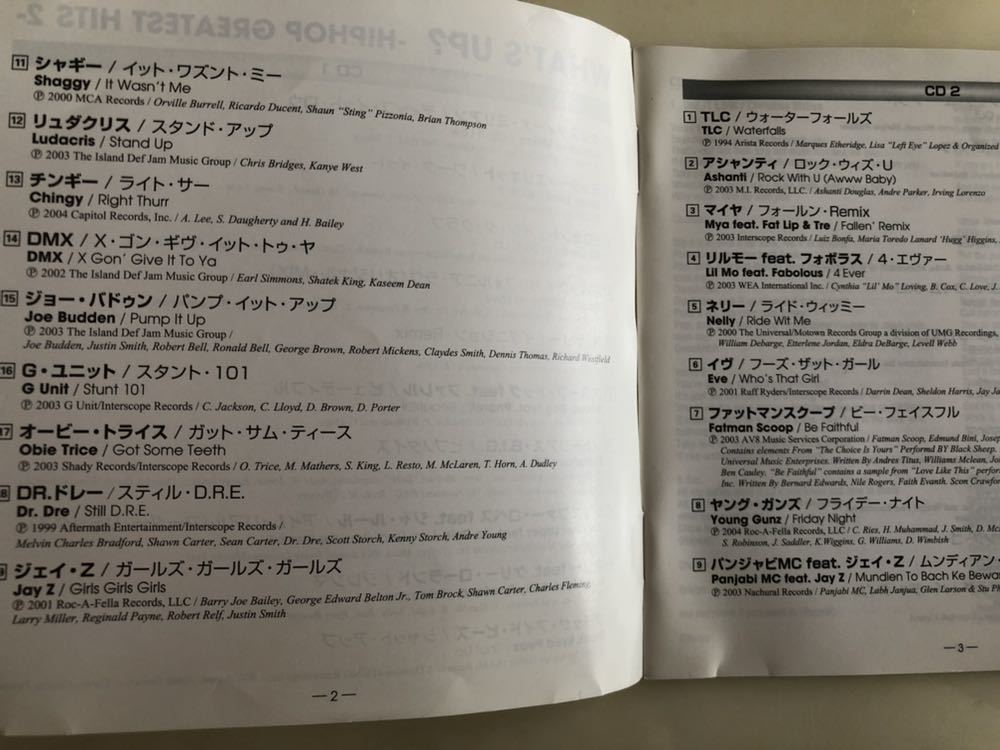 11 シャギー / イット・ワズント・ミー
Shaggy / It Wasn't Me
Ⓟ 2000 MCA Records / Orville Burrell, Ricardo Ducent, Shaun "Sting" Pizzonia, Brian Thompson
12 リュダクリス / スタンド・アップ
Ludacris / Stand Up
Ⓟ 2003 The Island Def Jam Music Group / Chris Bridges, Kanye West
13 チンギー / ライト・サー
Chingy / Right Thurr
Ⓟ 2004 Capitol Records, Inc. / A. Lee, S. Daugherty and H. Bailey
14 DMX / X・ゴン・ギヴ・イット・トゥ・ヤ
DMX / X Gon' Give It To Ya
Ⓟ 2002 The Island Def Jam Music Group / Earl Simmons, Shatek King, Kaseem Dean
15 ジョー・バドゥン / パンプ・イット・アップ
Joe Budden / Pump It Up
Ⓟ 2003 The Island Def Jam Music Group /
Joe Budden, Justin Smith, Robert Bell, Ronald Bell, George Brown, Robert Mickens, Claydes Smith, Dennis Thomas, Richard Westfield
16 G・ユニット / スタント・101
G Unit / Stunt 101
Ⓟ 2003 G Unit/Interscope Records / C. Jackson, C. Lloyd, D. Brown, D. Porter
17 オービー・トライス / ガット・サム・ティース
Obie Trice / Got Some Teeth
Ⓟ 2003 Shady Records/Interscope Records / O. Trice, M. Mathers, S. King, L. Resto, M. McLaren, T. Horn, A. Dudley
8 DR.ドレー / スティル・D.R.E.
Dr. Dre / Still D.R.E.
Ⓟ 1999 Aftermath Entertainment/Interscope Records /
Melvin Charles Bradford, Shawn Carter, Sean Carter, Dr. Dre, Scott Storch, Kenny Storch, Andre Young
9 ジェイ・Z / ガールズ・ガールズ・ガールズ
Jay Z / Girls Girls Girls
Ⓟ 2001 Roc-A-Fella Records, LLC / Barry Joe Bailey, George Edward Belton Jr., Tom Brock, Shawn Carter, Charles Fleming,
Larry Miller, Reginald Payne, Robert Relf, Justin Smith
—2—
CD 2
1 TLC / ウォーターフォールズ
TLC / Waterfalls
Ⓟ 1994 Arista Records / Marques Etheridge, Lisa "Left Eye" Lopez & Organized
2 アシャンティ / ロック・ウィズ・U
Ashanti / Rock With U (Awww Baby)
Ⓟ 2003 M.I. Records, LLC. / Ashanti Douglas, Andre Parker, Irving Lorenzo
3 マイヤ / フォールン・Remix
Mya feat. Fat Lip & Tre / Fallen' Remix
Ⓟ 2003 Interscope Records / Luiz Bonfa, Maria Toredo Lanard 'Hugg' Higgins,
4 リルモー feat. フォボラス / 4・エヴァー
Lil Mo feat. Fabolous / 4 Ever
Ⓟ 2003 WEA International Inc. / Cynthia "Lil' Mo" Loving, B. Cox, C. Love, J.
5 ネリー / ライド・ウィッミー
Nelly / Ride Wit Me
Ⓟ 2000 The Universal/Motown Records Group a division of UMG Recordings,
William Debarge, Etterlene Jordan, Eldra DeBarge, Levell Webb
6 イヴ / フーズ・ザット・ガール
Eve / Who's That Girl
Ⓟ 2001 Ruff Ryders/Interscope Records / Darrin Dean, Sheldon Harris, Jay Ja
7 ファットマンスクープ / ビー・フェイスフル
Fatman Scoop / Be Faithful
Ⓟ 2003 AV8 Music Services Corporation / Fatman Scoop, Edmund Bini, Josep
Contains elements From "The Choice Is Yours" Performd BY Black Sheep.
Universal Music Enterprises. Written By Andres Titus, Williams Mclean, Jo
Ben Cauley. "Be Faithful" contains a sample from "Love Like This" perform
Inc. Written by Bernard Edwards, Nile Rogers, Faith Evanth. Scon Crawfor
8 ヤング・ガンズ / フライデー・ナイト
Young Gunz / Friday Night
Ⓟ 2004 Roc-A-Fella Records, LLC / C. Ries, H. Muhammad, J. Smith, D. Mc
S. Robinson, J. Saddler, K.Wiggins, G. Williams, D. Wimbish
9 パンジャビMC feat. ジェイ・Z / ムンディアン・
Panjabi MC feat. Jay Z / Mundien To Bach Ke Bewar
Ⓟ 2003 Nachural Records / Panjabi MC, Labh Janjua, Glen Larson & Stu Ph
—3—